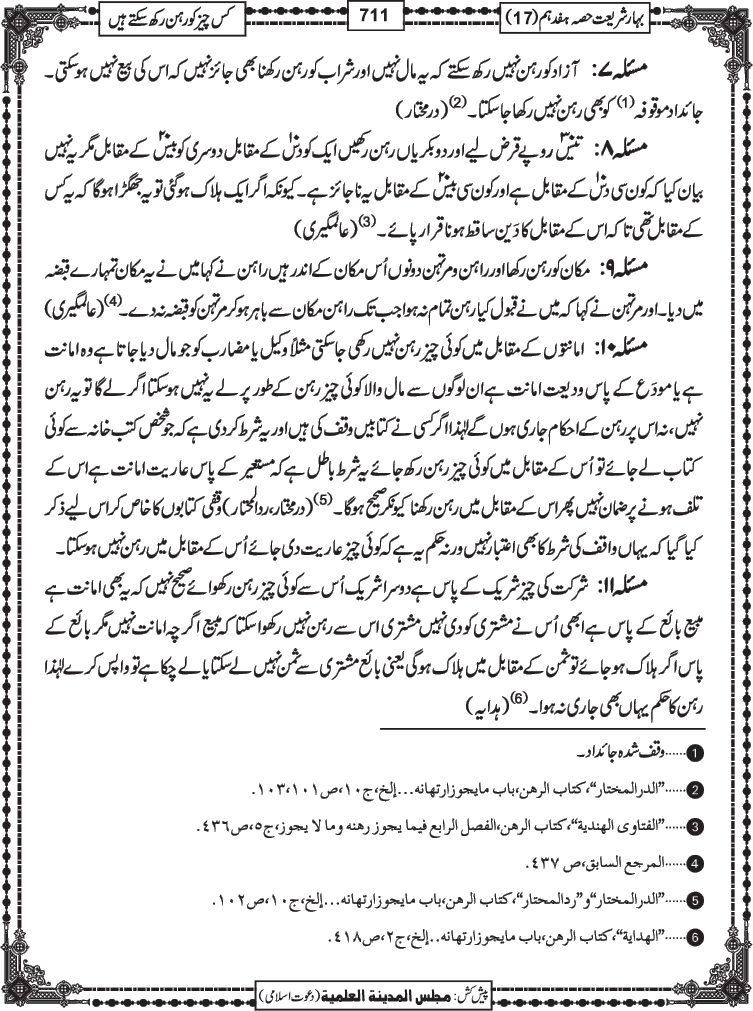 بہارشریعت حصہ ہفدہم (17)
711
کس چیز کو رہن رکھ سکتے ہیں
مسئلہ ۷: آزاد کو رہن نہیں رکھ سکتے کہ یہ مال نہیں اور شراب کو رہن رکھنا بھی جائز نہیں کہ اس کی بیع نہیں ہوسکتی۔
جائداد موقوفہ (1) کو بھی رہن نہیں رکھا جاسکتا۔(2) (درمختار)
مسئلہ ۸: تیس۳۰ روپے قرض لیے اور دو بکریاں رہن رکھیں ایک کو دس۱۰ کے مقابل دوسری کو بیس۲۰ کے مقابل مگر یہ نہیں
بیان کیا کہ کون سی دس۱۰ کے مقابل ہے اور کون سی بیس۲۰ کے مقابل یہ ناجائز ہے۔ کیونکہ اگر ایک ہلاک ہوگئی تو یہ جھگڑا ہوگا کہ یہ کس
کے مقابل تھی تاکہ اس کے مقابل کا دَین ساقط ہونا قرار پائے۔(3) (عالمگیری)
مسئلہ ۹: مکان کو رہن رکھا اور راہن و مرتہن دونوں اُس مکان کے اندر ہیں راہن نے کہا میں نے یہ مکان تمہارے قبضہ
میں دیا۔ اور مرتہن نے کہا کہ میں نے قبول کیا رہن تمام نہ ہوا جب تک راہن مکان سے باہر ہو کر مرتہن کو قبضہ نہ دے۔(4) (عالمگیری)
مسئلہ ۱۰: امانتوں کے مقابل میں کوئی چیز رہن نہیں رکھی جاسکتی مثلاً وکیل یا مضارب کو جو مال دیا جاتا ہے وہ امانت
ہے یا مودَع کے پاس ودیعت امانت ہے ان لوگوں سے مال والا کوئی چیز رہن کے طور پر لے یہ نہیں ہوسکتا اگر لے گا تو یہ رہن
نہیں، نہ اس پر رہن کے احکام جاری ہوں گے لہٰذا اگر کسی نے کتابیں وقف کی ہیں اور یہ شرط کردی ہے کہ جو شخص کتب خانہ سے کوئی
کتاب لے جائے تو اُس کے مقابل میں کوئی چیز رہن رکھ جائے یہ شرط باطل ہے کہ مستعیر کے پاس عاریت امانت ہے اس کے
تلف ہونے پر ضمان نہیں پھر اس کے مقابل میں رہن رکھنا کیونکر صحیح ہوگا۔(5) (درمختار، ردالمحتار) وقفی کتابوں کا خاص کر اس لیے ذکر
کیا گیا کہ یہاں واقف کی شرط کا بھی اعتبار نہیں ورنہ حکم یہ ہے کہ کوئی چیز عاریت دی جائے اُس کے مقابل میں رہن نہیں ہوسکتا۔
مسئلہ ۱۱: شرکت کی چیز شریک کے پاس ہے دوسرا شریک اُس سے کوئی چیز رہن رکھوائے صحیح نہیں کہ یہ بھی امانت ہے
مبیع بائع کے پاس ہے ابھی اُس نے مشتری کو دی نہیں مشتری اس سے رہن نہیں رکھوا سکتا کہ مبیع اگرچہ امانت نہیں مگر بائع کے
پاس اگر ہلاک ہوجائے تو ثمن کے مقابل میں ہلاک ہوگی یعنی بائع مشتری سے ثمن نہیں لے سکتا یا لے چکا ہے تو واپس کرے لہٰذا
رہن کا حکم یہاں بھی جاری نہ ہوا۔(6) (ہدایہ)
1......وقف شدہ جائداد۔
2......"الدرالمختار"، کتاب الرھن، باب مایجوز ارتھانہ...إلخ، ج۱۰، ص۱۰۱، ۱۰۳.
3......"الفتاوی الھندیۃ"، کتاب الرھن، الفصل الرابع فیما یجوز رھنہ وما لا یجوز، ج۵، ص۴۳۶.
4......المرجع السابق، ص۴۳۷.
5......"الدرالمختار" و "ردالمحتار"، کتاب الرھن، باب مایجوز ارتھانہ...إلخ، ج۱۰، ص۱۰۲.
6......"الھدایۃ"، کتاب الرھن، باب مایجوز ارتھانہ..إلخ، ج۲، ص۴۱۸.
پیش کش: مجلس المدینۃ العلمیۃ (دعوت اسلامی)